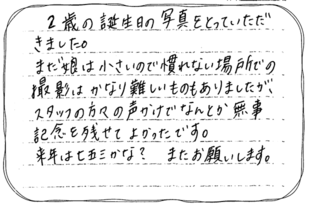 2歳の誕生日の写真をとっていただ
きました。
まだ娘は小さいので慣れない場所での
撮影はかなり難しいものもありましたが、
スタッフの方々の声かけでなんとか無事
記念を残せてよかったです。
来年は七五三かな? またお願いします。